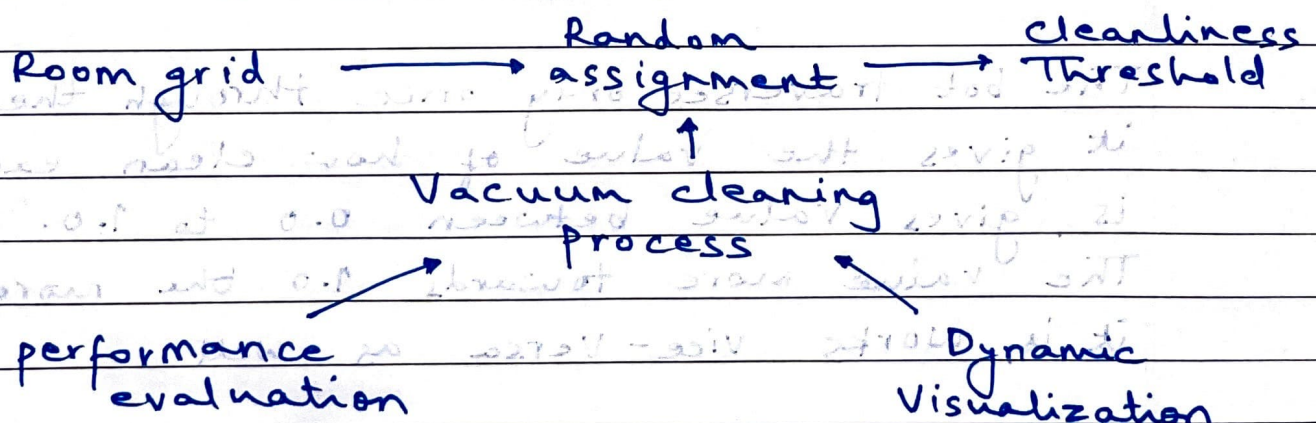 Room grid
Random
assignment
cleanliness
Threshold
Vacuum cleaning
process
performance
evaluation
Dynamic
Visualization